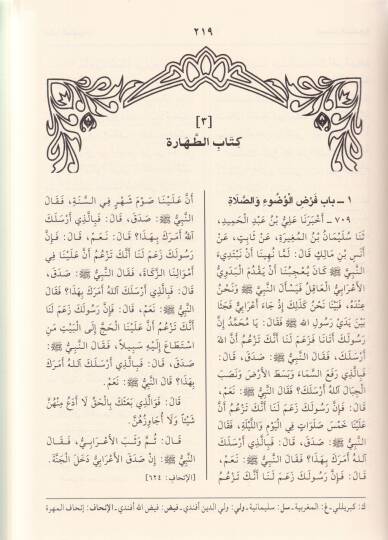 ٢١٩
[٣]
كِتَاب الطَّهَارة
١ ـ باب فَرْضِ الْوُضُوءِ وَالصَّلَاةِ
٧٠٩ ـ أَخْبَرَنَا عَلِيُّ بْنُ عَبْدِ الْحَمِيدِ،
ثَنَا سُلَيْمَانُ بْنُ الْمُغِيرَةِ، عَنْ ثَابِتٍ، عَنْ
أَنَسِ بْنِ مَالِكٍ قَالَ: لَمَّا نُهِينَا أَنْ نَبْتَدِيءَ
النَّبِيَّ ﷺ كَانَ يُعْجِبُنَا أَنْ يَقْدُمَ الْبَدَوِيُّ
الْأَعْرَابِيُّ الْعَاقِلُ فَيَسْأَلَ النَّبِيَّ ﷺ وَنَحْنُ
عِنْدَهُ، فَبَيْنَا نَحْنُ كَذَلِكَ إِذْ جَاءَ أَعْرَابِيٌّ فَجَثَا
بَيْنَ يَدَيْ رَسُولِ اللهِ ﷺ فَقَالَ: يَا مُحَمَّدُ إِنَّ
رَسُولَكَ أَتَانَا فَزَعَمَ لَنَا أَنَّكَ تَزْعُمُ أَنَّ اللهَ
أَرْسَلَكَ، فَقَالَ النَّبِيُّ ﷺ: صَدَقَ، قَالَ:
فَبِالَّذِي رَفَعَ السَّمَاءَ وَبَسَطَ الْأَرْضَ وَنَصَبَ
الْجِبَالَ آللهُ أَرْسَلَكَ؟ فَقَالَ النَّبِيُّ ﷺ: نَعَمْ،
قَالَ: فَإِنَّ رَسُولَكَ زَعَمَ لَنَا أَنَّكَ تَزْعُمُ أَنَّ
عَلَيْنَا خَمْسَ صَلَوَاتٍ فِي الْيَوْمِ وَاللَّيْلَةِ، فَقَالَ
النَّبِيُّ ﷺ: صَدَقَ، قَالَ: فَبِالَّذِي أَرْسَلَكَ آللهُ
أَمَرَكَ بِهَذَا؟ قَالَ النَّبِيُّ ﷺ: نَعَمْ،
قَالَ: فَإِنَّ رَسُولَكَ زَعَمَ لَنَا أَنَّكَ تَزْعُمُ
أَنَّ عَلَيْنَا صَوْمَ شَهْرٍ فِي السَّنَةِ، فَقَالَ
النَّبِيُّ ﷺ: صَدَقَ، قَالَ: فَبِالَّذِي أَرْسَلَكَ
آللهُ أَمَرَكَ بِهَذَا؟ قَالَ: نَعَمْ، قَالَ: فَإِنَّ
رَسُولَكَ زَعَمَ لَنَا أَنَّكَ تَزْعُمُ أَنَّ عَلَيْنَا فِي
أَمْوَالِنَا الزَّكَاةَ، فَقَالَ النَّبِيُّ ﷺ: صَدَقَ،
قَالَ: فَبِالَّذِي أَرْسَلَكَ آللهُ أَمَرَكَ بِهَذَا؟ قَالَ
النَّبِيُّ ﷺ: نَعَمْ، قَالَ: فَإِنَّ رَسُولَكَ زَعَمَ لَنَا
أَنَّكَ تَزْعُمُ أَنَّ عَلَيْنَا الْحَجَّ إِلَى الْبَيْتِ مَنِ
اسْتَطَاعَ إِلَيْهِ سَبِيلاً، فَقَالَ النَّبِيُّ ﷺ:
صَدَقَ، قَالَ: فَبِالَّذِي أَرْسَلَكَ آللهُ أَمَرَكَ
بِهَذَا؟ قَالَ النَّبِيُّ ﷺ: نَعَمْ.
قَالَ: فَوَالَّذِي بَعَثَكَ بِالْحَقِّ لَا أَدَعُ مِنْهُنَّ
شَيْئاً وَلَا أُجَاوِزُهُنَّ.
قَالَ: ثُمَّ وَثَبَ الْأَعْرَابِيُّ، فَقَالَ
النَّبِيُّ ﷺ: إِنْ صَدَقَ الْأَعْرَابِيُّ دَخَلَ الْجَنَّةَ.
[الإتحاف: ٦٢٤]
ك: كبريللي ـ غ: المغربية ـ سل: سليمانية ـ ولي: ولي الدين أفندي ـ فيض: فيض الله أفندي ـ الإتحاف: إتحاف المهرة